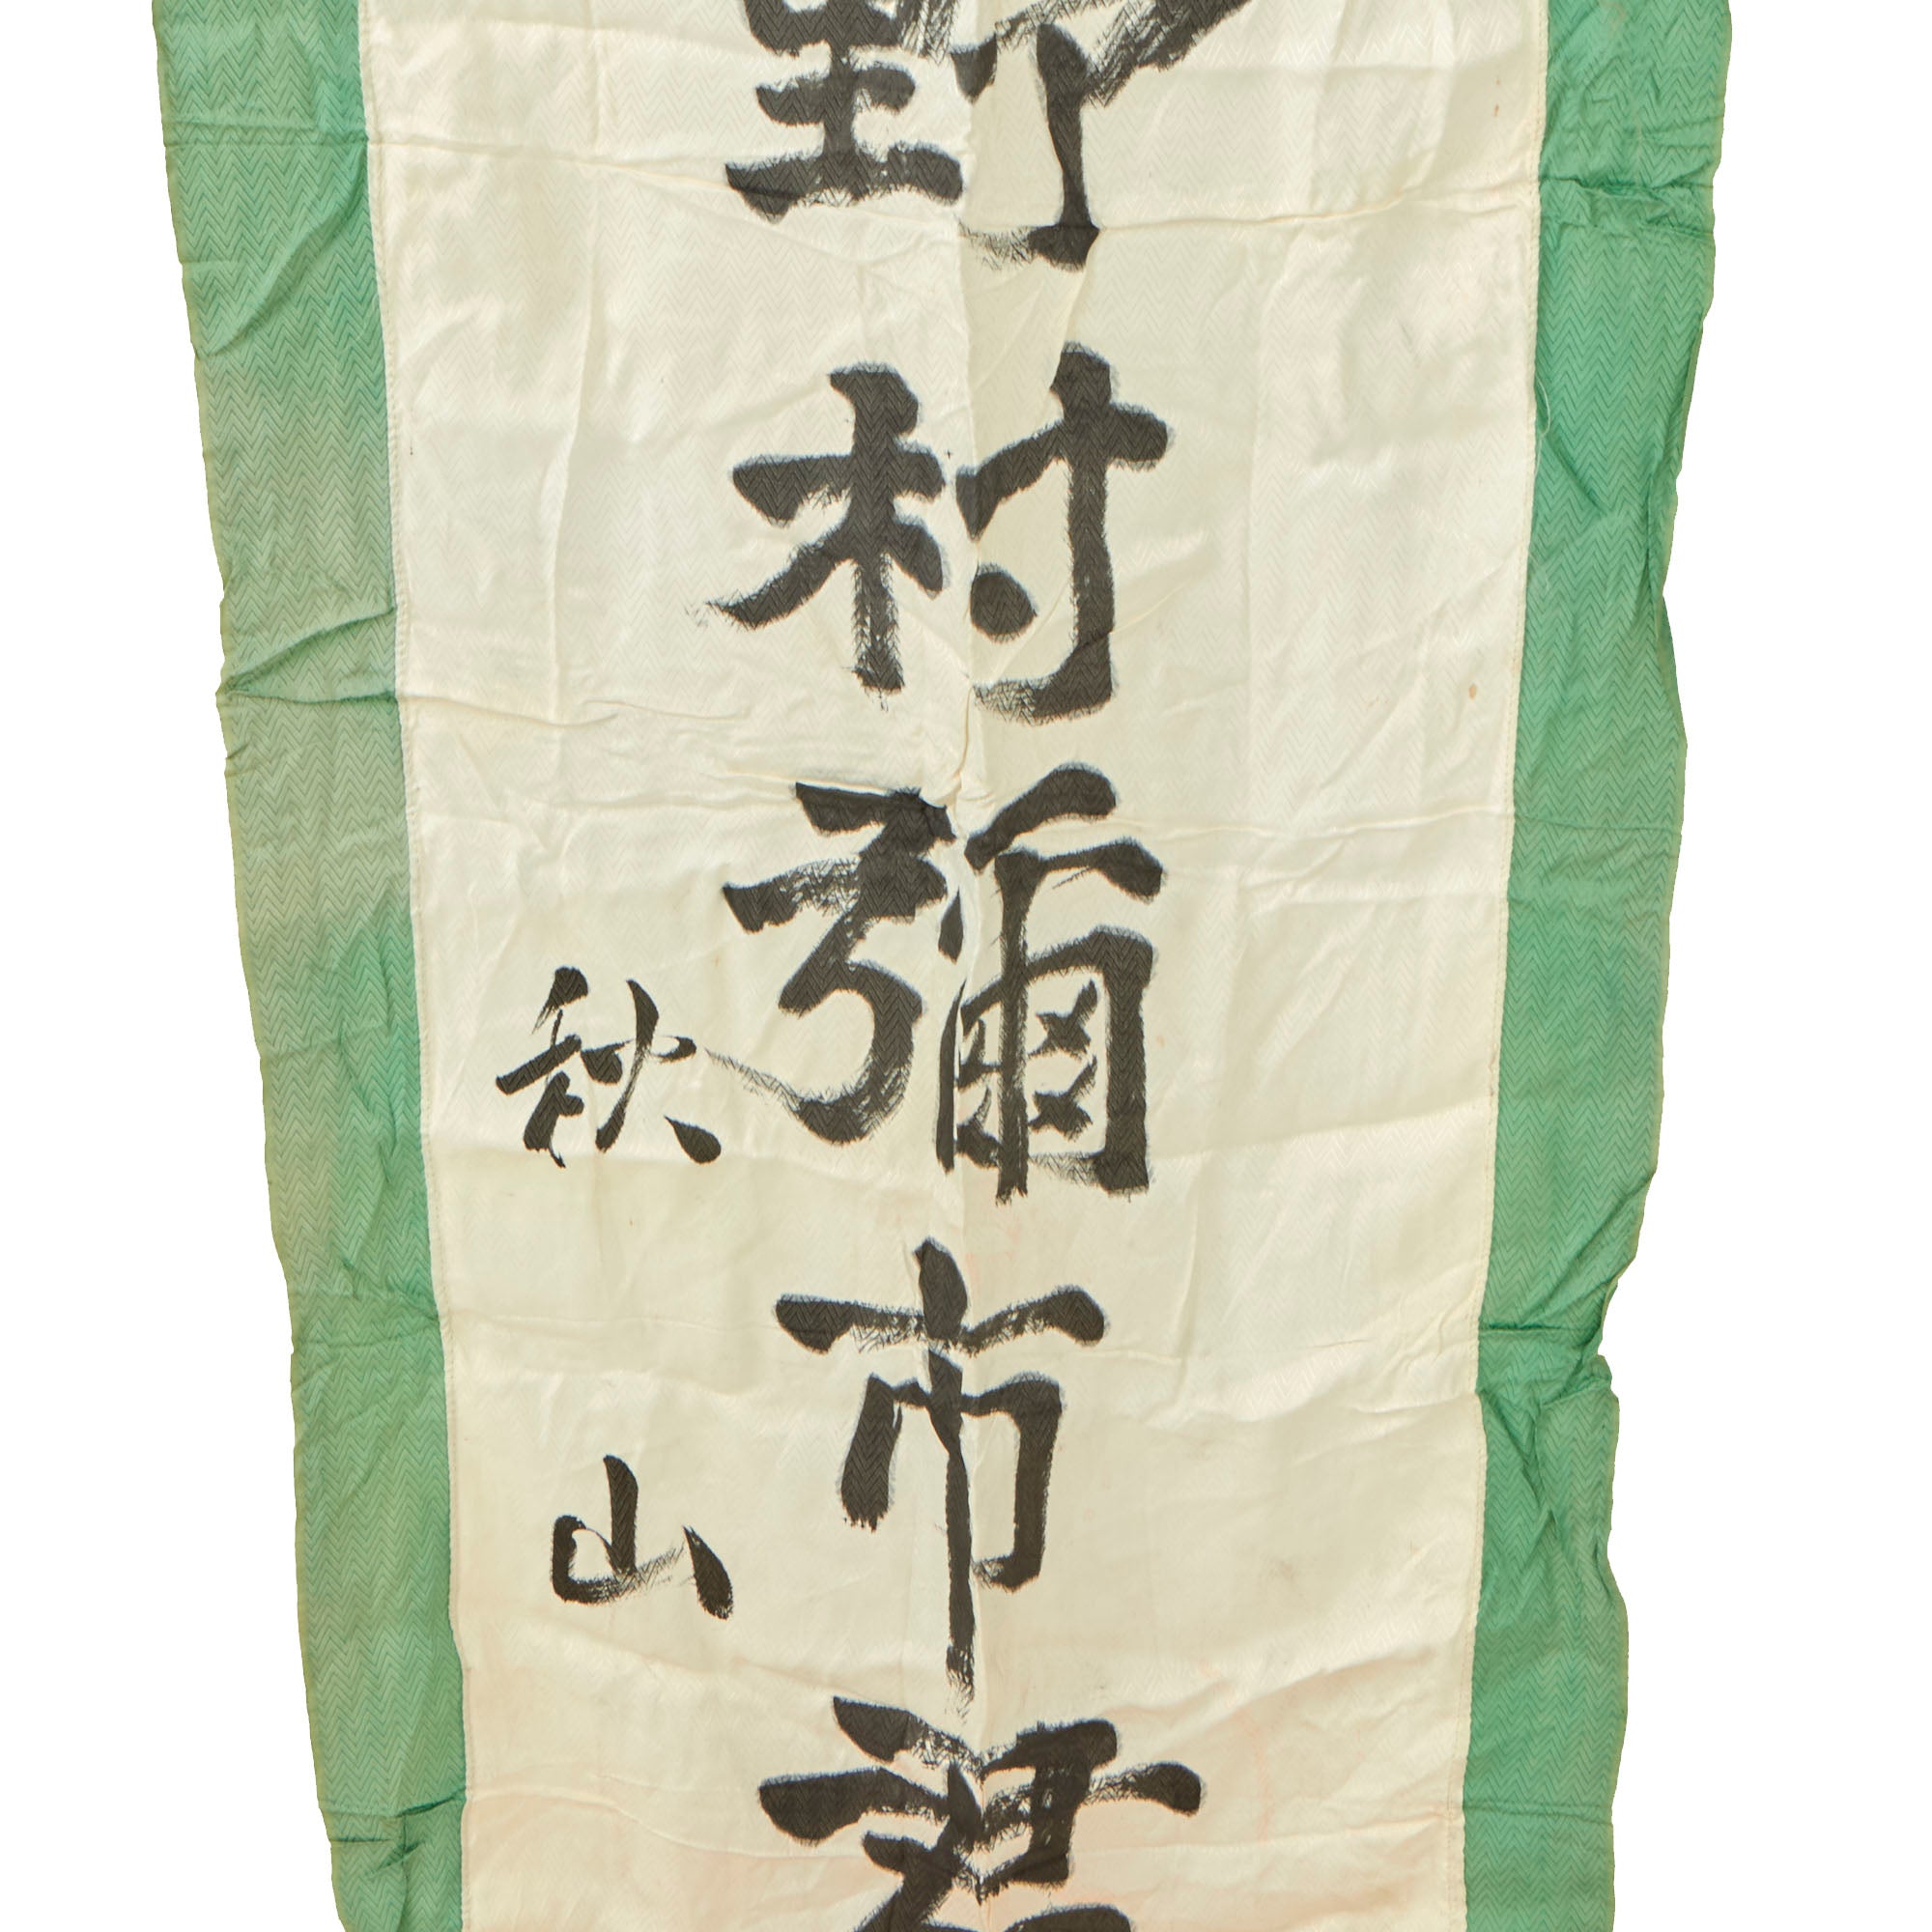 野村彌市君
秋山